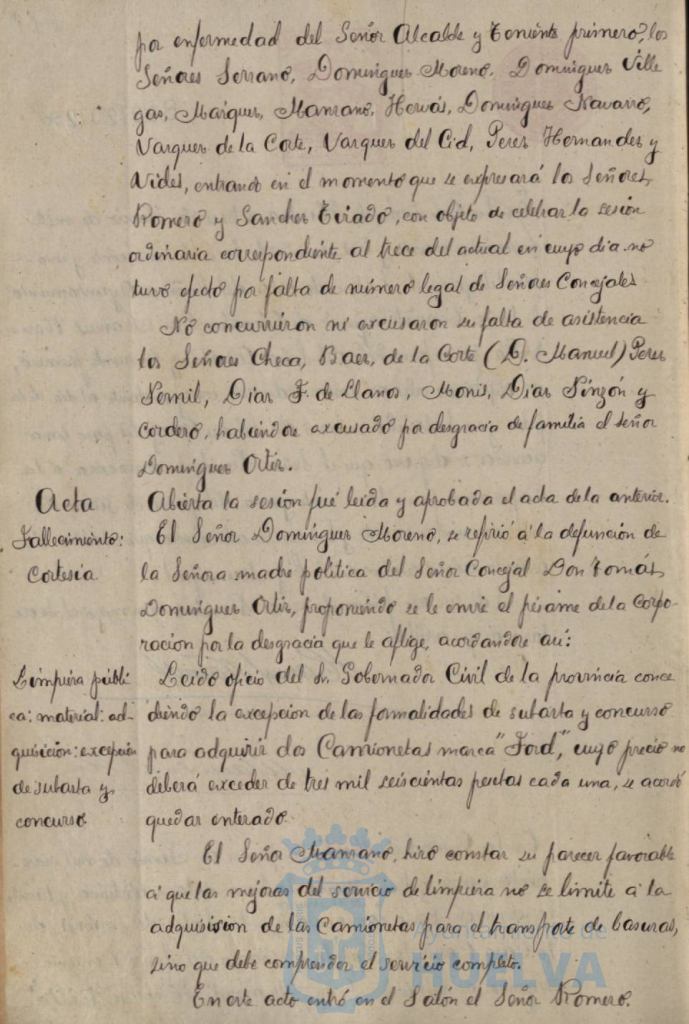 por enfermedad del Señor Alcalde y Teniente primero, los
Señores Serrano, Dominguez Moreno, Dominguez Ville
gas, Marquez, Manzano, Hervás, Dominguez Navarro,
Vazquez de la Corte, Vazquez del Cid, Perez Hernandez y
Vides, entrando en el momento que se expresará los Señores
Romero y Sanchez Tirado, con objeto de celebrar la sesión
ordinaria correspondiente al trece del actual en cuyo dia no
tuvo efecto por falta de número legal de Señores Concejales
No concurrieron ni excusaron su falta de asistencia
los Señores Checa, Baez, de la Corte (D. Manuel) Perez
Diaz F. de Llanos, Monis, Diaz Pinzón y
Cordero, habiendose excusado por desgracia de familia el señor
Dominguez Ortiz.
Acta
Abierta la sesión fué leida y aprobada el acta de la anterior.
Fallecimiento:
Cortesia
El Señor Dominguez Moreno, se refirió á la defunción de
la Señora madre politica del Señor Concejal Don Tomás
Dominguez Ortiz, proponiendo se le envie el pésame de la Corpo-
racion por la desgracia que le aflige, acordandose asi:
Limpieza públi
ca: material: ad-
quisición: excepción
de subasta y
concurso
Leido oficio del Sr. Gobernador Civil de la provincia conce
diendo la excepcion de las formalidades de subasta y concurso
para adquirir dos Camionetas marca "Ford", cuyo precio no
deberá exceder de tres mil seiscientas pesetas cada una, se acordó
quedar enterado.
El Señor Manzano, hizo constar su parecer favorable
á que las mejoras del servicio de limpieza no se limite á la
adquisicion de las Camionetas para el transporte de basuras,
sino que debe comprender el servicio completo.
En este acto entró en el Salón el Señor Romero.
Ayuntamiento de
HUELVA